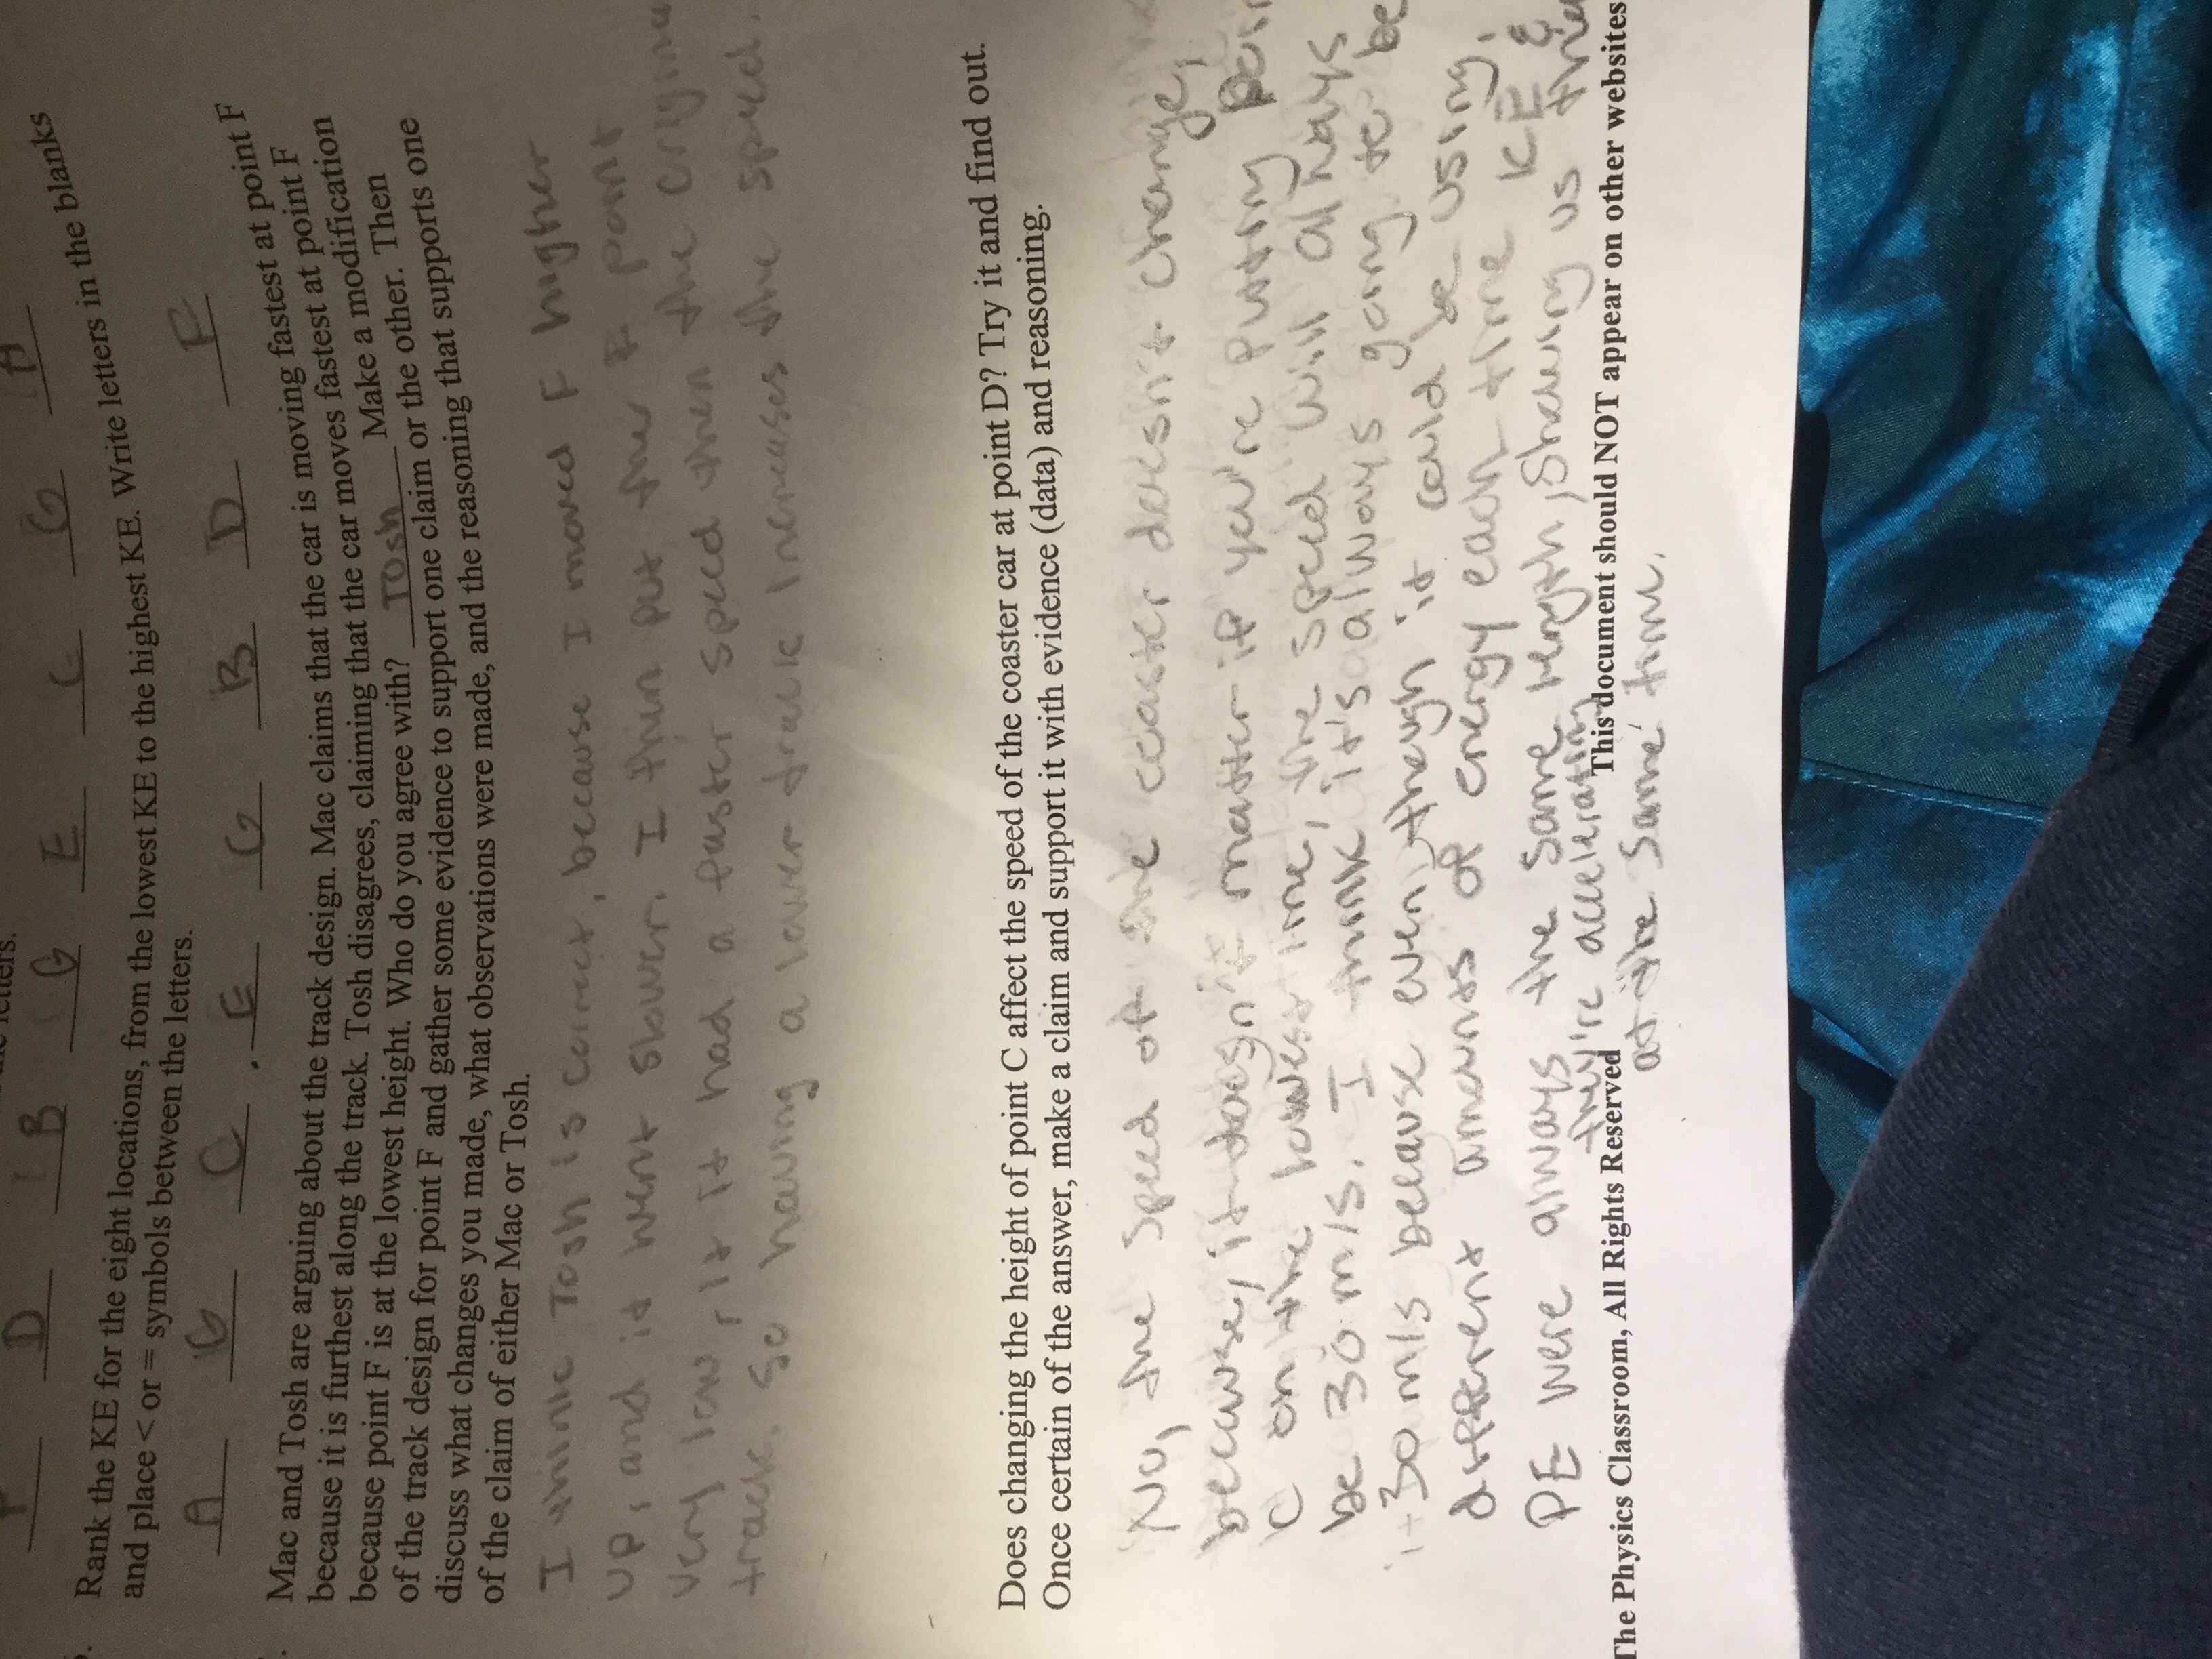 letters.
D B G E C G A
Rank the KE for the eight locations, from the lowest KE to the highest KE. Write letters in the blanks
and place < or = symbols between the letters.
A G C E G B D F
Mac and Tosh are arguing about the track design. Mac claims that the car is moving fastest at point F
because it is furthest along the track. Tosh disagrees, claiming that the car moves fastest at point
because point F is at the lowest height. Who do you agree with? Tosh Make a modification
of the track design for point F and gather some evidence to support one claim or the other. Then
discuss what changes you made, what observations were made, and the reasoning that supports one
of the claim of either Mac or Tosh.
I think Tosh is correct, because I moved F higher
up, and it went slower. I then put the F point
very low, it had a faster speed then the
track. So having a lower track increases the speed.
Does changing the height of point C affect the speed of the coaster car at point D? Try it and find out.
Once certain of the answer, make a claim and support it with evidence (data) and reasoning.
No, the speed of the coaster doesn't change,
because, it doesn't matter if you're putting
C on the lowest line, the speed will always
be 30 m/s. I think it's always going to be
30 m/s because even though it could be using
different amounts of energy each time KE &
PE were always the same length, showing us
they're accelerating
at the same time.
The Physics Classroom, All Rights Reserved This document should NOT appear on other websites